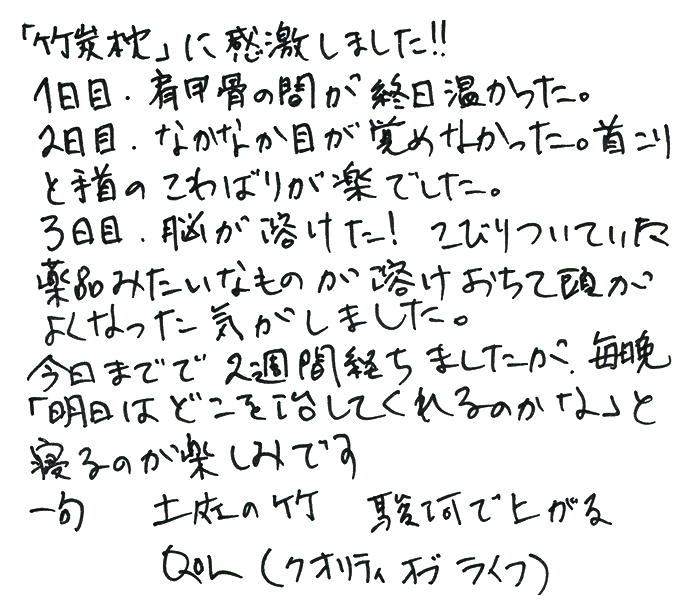 「竹炭枕」に感激しました!!
1日目.肩甲骨の間が終日温かった。
2日目.なかなか目が覚めなかった。首こり
と手首のこわばりが楽でした。
3日目.脳が溶けた! こびりついていた
薬品みたいなものが溶けおちて頭が
よくなった気がしました。
今日までで2週間経ちましたが、毎晩
「明日はどこを治してくれるのかな」と
寝るのが楽しみです
一句 土佐の竹 駿河で上がる
QOL(クオリティオブライフ)